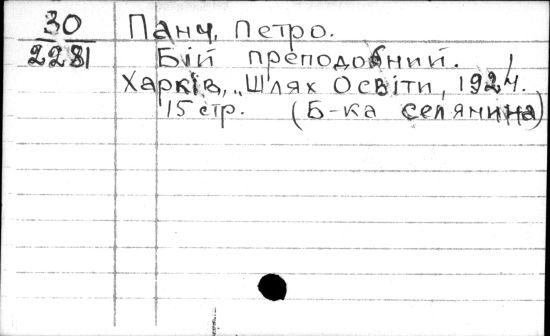 30 Панч, Петро.
2281 Бій преподобний.
Харків, „Шлях Освіти, 1924.
15 стр. (Б-ка селянина)